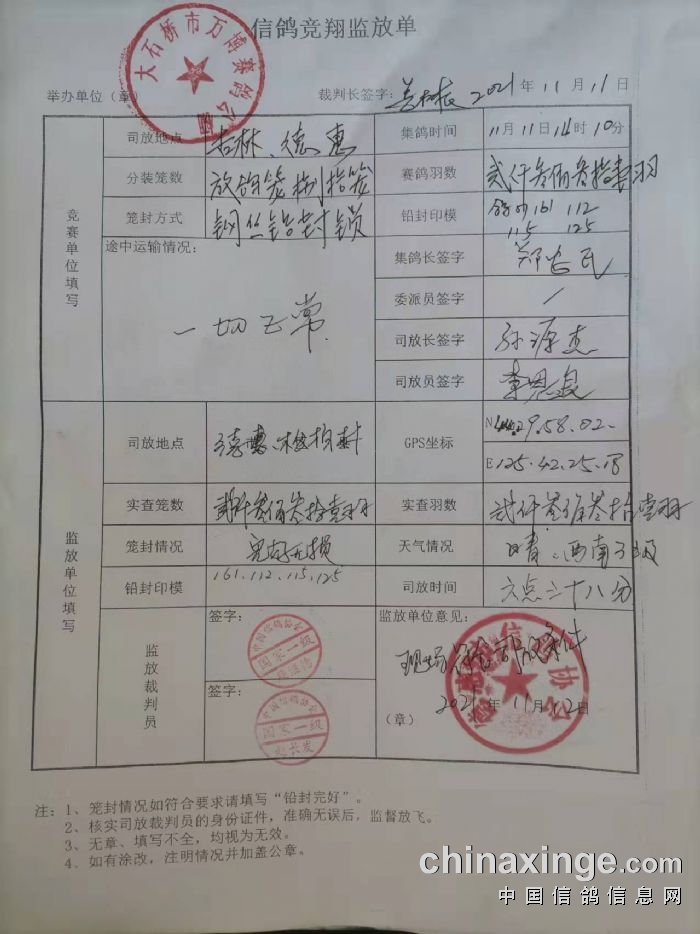 信鸽竞翔监放单
大石桥市万博赛鸽公棚
举办单位（章）
裁判长签字：
2021年11月11日
竞赛单位填写
司放地点 吉林、德惠 集鸽时间 11月11日14时10分
分装笼数 赛鸽羽数 贰仟叁佰叁拾壹羽
笼封方式 钢丝铅封锁 铅封印模 161 112
115 125
途中运输情况：
一切正常
集鸽长签字
委派员签字 /
司放长签字 孙源
司放员签字
监放单位填写
司放地点 GPS坐标 29.58.02
E125.42.25.
实查笼数 贰仟叁佰叁拾壹羽 实查羽数 贰仟叁佰叁拾壹羽
笼封情况 完好无损 天气情况 晴、西南3级
铅封印模 161.112.115.125 司放时间 六点二十八分
监放裁判员
签字：
中国信鸽协会
国家一级
签字：
中国信鸽协会
国家一级
监放单位意见：
现场符合司放条件
信鸽协会
2021年11月12日
（章）
注：1、笼封情况如符合要求请填写“铅封完好”。
2、核实司放裁判员的身份证件，准确无误后，监督放飞。
3、无章、填写不全，均视为无效。
4、如有涂改，注明情况并加盖公章。
chinaxinge.com
中国信鸽信息网